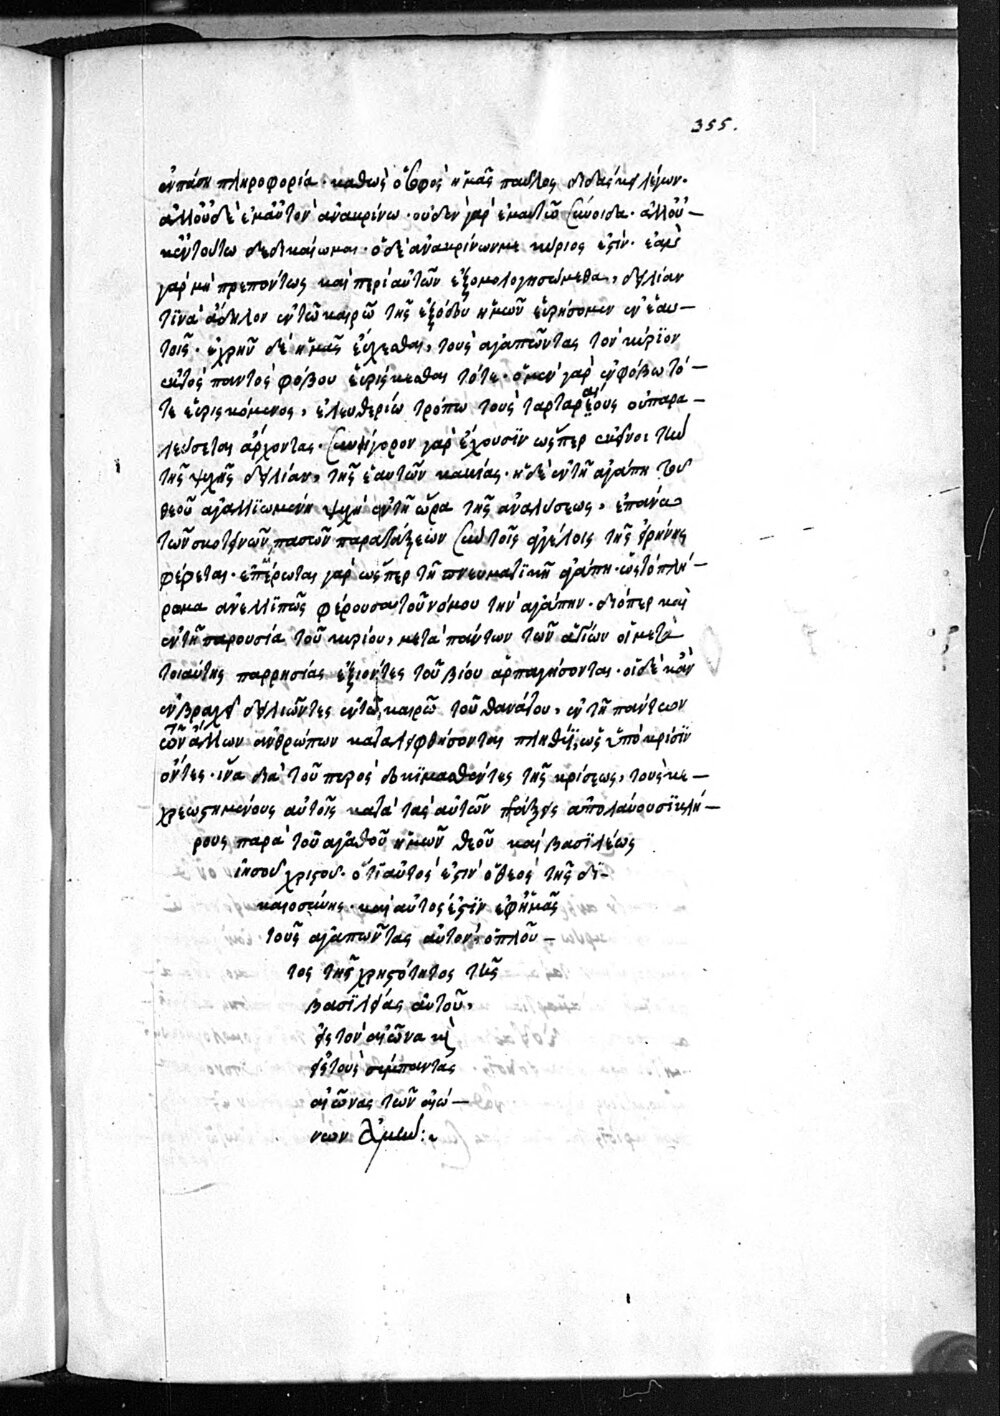 355.
ἐν πάσῃ πληροφορία· καθὼς ὁ σοφὸς ἡμᾶς παῦλος διδάσκει λέγων·
ἀλλ' οὐδὲ ἐμαυτὸν ἀνακρίνω· οὐδὲν γὰρ ἐμαυτῶ σύνοιδα· ἀλλ' οὐ-
κ ἐν τούτω δεδικαίωμαι· ὁ δὲ ἀνακρίνων με κύριος ἐστίν· ἐὰν
γὰρ μὴ πρεπόντως καὶ περὶ αὐτῶν ἐξομολογησώμεθα, δειλίαν
τινὰ ἄδηλον ἐν τῶ καιρῶ τῆς ἐξόδου ἡμῶν εὑρήσομεν ἐν ἑαυ-
τοῖς· ἐχρῆν δὲ ἡμᾶς εὔχεσθαι, τοὺς ἀγαπῶντας τὸν κύριον
ἐκτὸς παντὸς φόβου εὑρίσκεσθαι τότε· ὁ μὲν γὰρ ἐν φόβω τό-
τε εὑρισκόμενος, ἐλευθερίω τρόπω τοὺς ταρταραίους οὐ παρα-
λεύσεται ἄρχοντας· συνήγορον γὰρ ἔχουσιν ὥσπερ ἐκεῖνοι τὴν
τῆς ψυχῆς δειλίαν, τῆς ἑαυτῶν κακίας· ἡ δὲ ἐν τῆ ἀγάπη τοῦ
θεοῦ ἀγαλλιωμένη ψυχὴ ἐν τῆ ὥρα τῆς ἀναλύσεως, ἐπάνω
τῶν σκοτεινῶν πασῶν παρατάξεων σὺν τοῖς ἀγγέλοις τῆς εἰρήνης
φέρεται· ἐπτέρωται γὰρ ὥσπερ τῆ πνευματικῆ ἀγάπη· ὡς τὸ πλή-
ρωμα ἀνελλιπῶς φέρουσα τοῦ νόμου τὴν ἀγάπην· διόπερ καὶ
ἐν τῆ παρουσία τοῦ κυρίου, μετὰ πάντων τῶν ἁγίων οἱ μετὰ
τοιαύτης παρρησίας ἐξιόντες τοῦ βίου ἁρπαγήσονται· οἱ δὲ κἂν
ἐν βραχεῖ δειλιῶντες ἐν τῶ καιρῶ τοῦ θανάτου, ἐν τῆ πάντων
τῶν ἄλλων ἀνθρώπων καταλειφθήσονται πληθύϊ, ὡς ὑπὸ κρίσιν
ὄντες· ἵνα διὰ τοῦ πυρὸς δοκιμασθέντες τῆς κρίσεως, τοὺς κε-
χρεωστημένους αὐτοῖς κατὰ τὰς αὐτῶν πράξεις ἀπολαύουσι κλή-
ρους παρὰ τοῦ ἀγαθοῦ ἡμῶν θεοῦ καὶ βασιλέως
ἰησοῦ χριστοῦ· ὅτι αὐτὸς ἐστὶν ὁ θεὸς τῆς δι-
καιοσύνης· καὶ αὐτὸς ἐστὶν ἐφ' ἡμᾶς
τοὺς ἀγαπῶντας αὐτόν, ὁ πλοῦ-
τος τῆς χρηστότητος τῆς
βασιλείας αὐτοῦ,
εἰς τὸν αἰῶνα καὶ
εἰς τοὺς σύμπαντας
αἰῶνας τῶν αἰώ-
νων ἀμήν:~